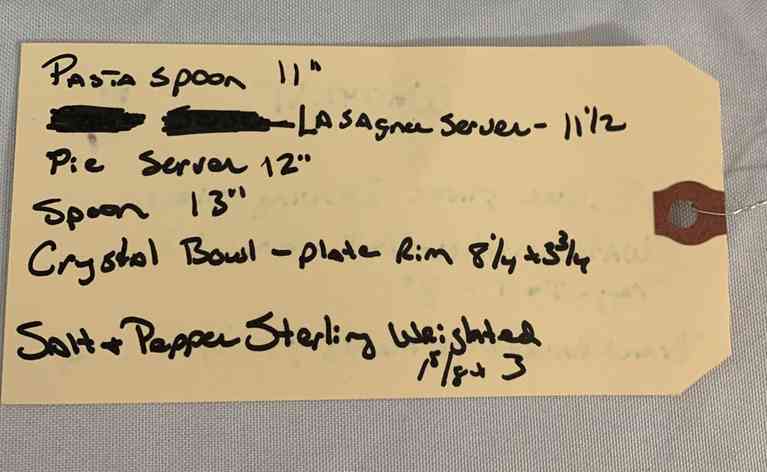 Pasta Spoon 11"
- Lasagna Server - 11 1/2
Pie Server 12"
Spoon 13"
Crystal Bowl - plate Rim 8 1/4 x 3 3/4
Salt + Pepper Sterling Weighted
1 5/8 x 3